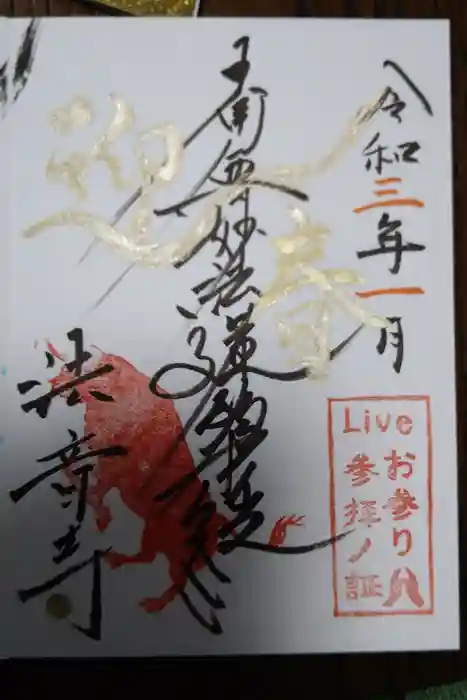 令和三年一月
迎春
南無妙法蓮華経
法音寺
Live
お参り
参拝ノ証